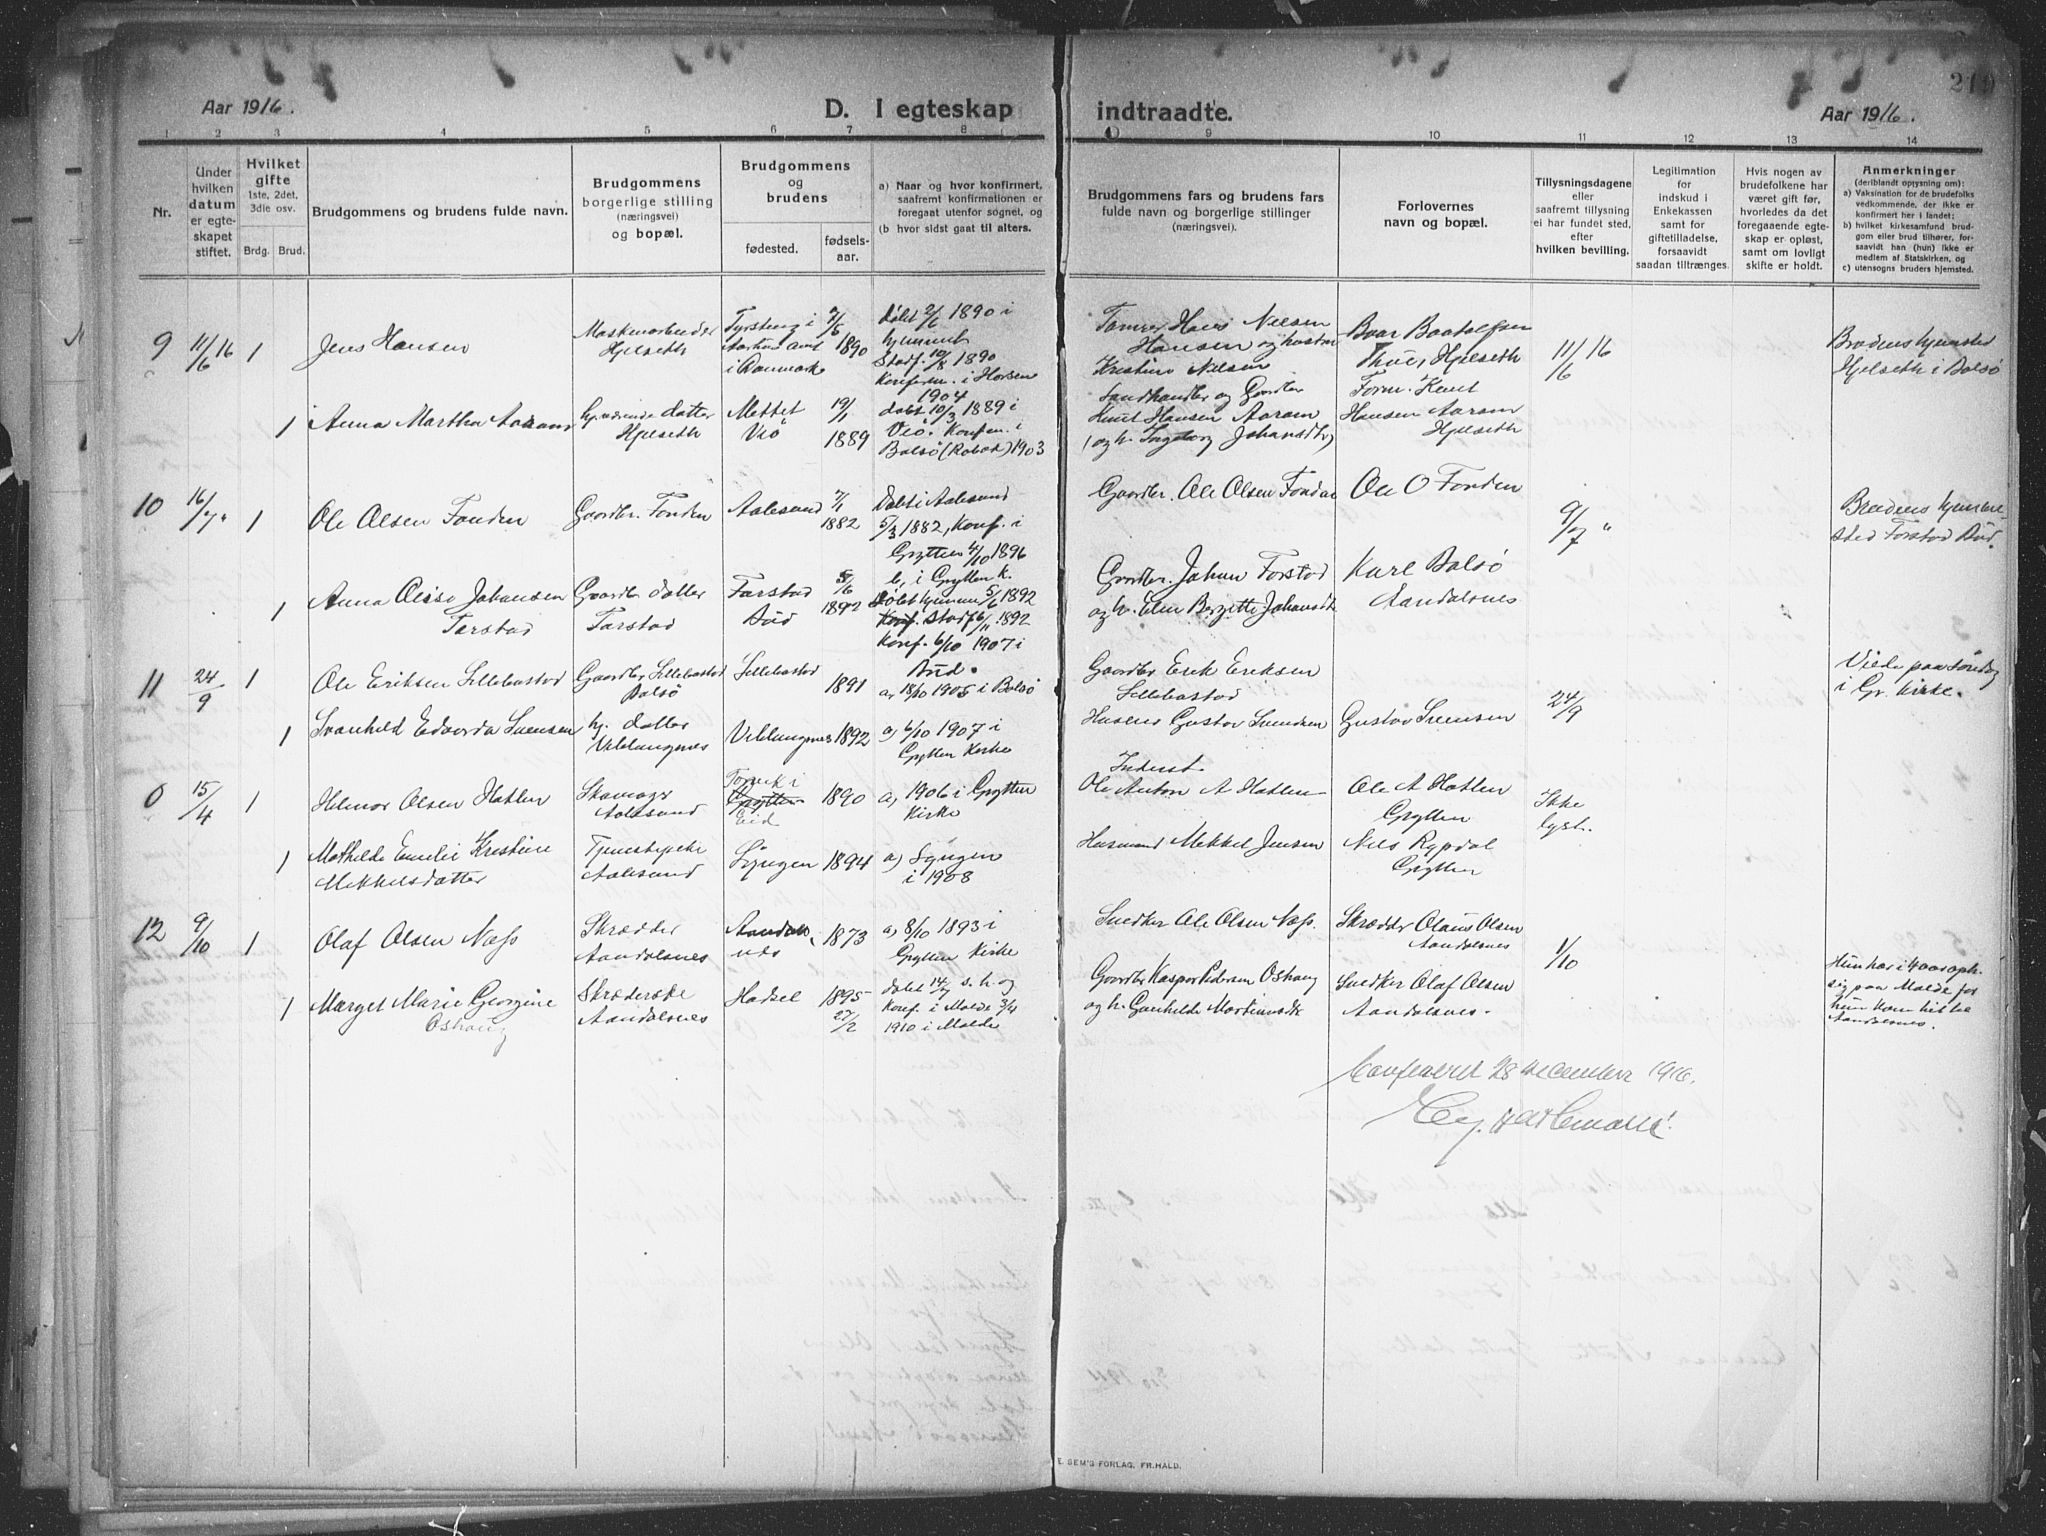 219
Aar 1916.
D. I egteskap
indtraadte.
Aar 1916.
1 2 3 4 5 6 7 8
9 10 11 12 13 14
Nr.
Under hvilken datum er egteskapet stiftet.
Hvilket gifte 1ste, 2det, 3die osv.
Brdg. Brud.
Brudgommens og brudens fulde navn.
Brudgommens borgerlige stilling (næringsvei) og bopæl.
Brudgommens og brudens
fødested. fødselsaar.
a) Naar og hvor konfirmert, saafremt konfirmationen er foregaat utenfor sognet, og
(b hvor sidst gaat til alters.
Brudgommens fars og brudens fars fulde navn og borgerlige stillinger (næringsvei).
Forlovernes navn og bopæl.
Tillysningsdagene eller saafremt tillysning ei har fundet sted, efter hvilken bevilling.
Legitimation for indskud i Enkekassen samt for giftetilladelse, forsaavidt saadan tiltrænges.
Hvis nogen av brudefolkene har været gift før, hvorledes da det foregaaende egteskap er opløst, samt om lovligt skifte er holdt.
Anmerkninger
(deriblandt oplysning om):
a) Vaksination for de brudefolks vedkommende, der ikke er konfirmert her i landet;
b) hvilket kirkesamfund brudgom eller brud tilhører, forsaavidt han (hun) ikke er medlem af Statskirken, og
c) utensogns bruders hjemsted.
9 11/6 16 1 Jens Hansen
Hjelseth
i Danmark
1890
døbt 2/6 1890 i
hjemmet
Stadf. 10/8 1890
Konfirm. i Horsen
1904
Hans Nielsen
Hansen og hustru
Kristine Nielsen
Thue, Hjelseth
11/6 16
Brudens hjemsted
Hjelseth i Bolsø
1 Anna Martha Aaram
hjemværende datter
Hjelseth
Mettet
Veø
19/1
1889
døbt 10/3 1889 i
Veø. Konfirm. i
Bolsø 1903
Landhandler og Gaardbr
Knut Hansen Aaram
(og h. Ingeborg Johansdtr)
Form. Knut
Hansen Aaram
Hjelseth
10 16/7 " 1 Ole Olsen Fonden
Gaardbr. Fonden
Aalesund
7/1
1882
Døbt i Aalesund
5/3 1882, Konf. i
Grytten 4/10 1896
b, i Grytten K.
Gaardbr. Ole Olsen Fonden
Ole O Fonden
9/7 "
Brudens hjemme-
sted Farstad Bud.
1 Anna Johansen
Farstad
Gaardbr datter
Farstad
Farstad
Bud
1892
Døbt hjemme 5/6 1892
Stadf 6/11 1892
Konf. 6/10 1907 i
Bud.
Gaardbr. Johan Farstad
og h. Elen Johansdtr
Karl Bolsø
Aandalsnes
11 24/9 1 Ole Eriksen Sellebastad
Gaardbr Sellebastad
Bolsø
Sellebastad
1891
a, 18/10 1905 i Bolsø
Gaardbr Erik Eriksen
Sellebastad
24/9
Viede paa Søndag
i Gr. Kirke.
1 Svanhild Edvarda Svensen
hj. datter
Veblungenes
Veblungenes 1892
a) 6/10 1907 i
Grytten Kirke
Gustav Svendsen
Gustav Svensen
0 15/4 1 Helmer Olsen Hatlen
Skomager
Aalesund
Torvik i
Grytten
Eid
1890
a) 1906 i Grytten
Kirke
Inderst.
Ole Anton A Hatlen
Ole A Hatlen
Grytten
Ikke
lyst.
1 Mathilde Emelie Kristine
Mekkelsdatter
Tjenestepike
Aalesund
Lyngen 1894
a) Lyngen
i 1908
Husmand Mekkel Jensen
Nils Rypdal
Grytten
12 9/10 1 Olaf Olsen Næss
Skrædder
Aandalsnes
1873
a) 8/10 1893 i
Grytten Kirke
Snedker Ole Olsen Næss.
Skrædder Olaus Olsen
Aandalsnes
1/10
1 Marget Marie Georgine
Oshaug
Aandalsnes
Hadsel
1895
27/2
døbt 14/7 s. h. og
Konf. i Molde 3/4
1910 i Molde
Gaardbr Kasper Pedersen Oshaug
og h. Gunhilde Martinusdtr
Snedker Olaf Olsen
Aandalsnes.
Hun har i 4 aar oph.
sig paa Molde før
hun kom hit til
Aandalsnes.
Confereret 28 december 1916.
E. SEM'S FORLAG, FR.HALD.